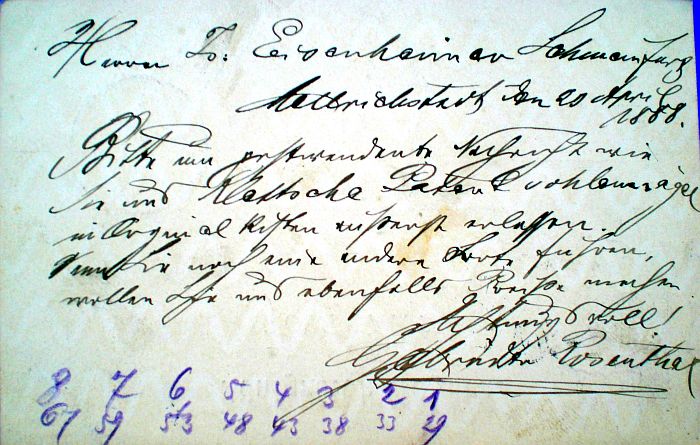 Herrn D. Eisenheimer Schweinfurt
Mellrichstadt den 20 April
1888.
Bitte um postwendende Nachricht wie
Sie uns Patent Sohlennägel
in Orginal Kisten äußerst erlassen.
Wenn Sie noch eine andere Sorte führen,
wollen Sie uns ebenfalls Preiße machen
Achtungsvoll!
Gebrüder Rosenthal
8 7 6 5 4 3 2 1
67 59 53 48 43 38 33 29